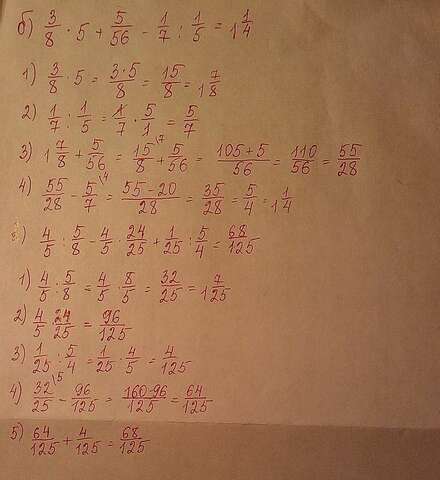 б) 3/8 · 5 + 5/56 - 1/7 : 1/5 = 1 1/4
1) 3/8 · 5 = 3·5/8 = 15/8 = 1 7/8
2) 1/7 : 1/5 = 1/7 · 5/1 = 5/7
3) 1 7/8 + 5/56 = 15/8 \7 + 5/56 = 105+5/56 = 110/56 = 55/28
4) 55/28 - 5/7 \4 = 55-20/28 = 35/28 = 5/4 = 1 1/4
г) 4/5 : 5/8 - 4/5 · 24/25 + 1/25 : 5/4 = 68/125
1) 4/5 : 5/8 = 4/5 · 8/5 = 32/25 = 1 7/25
2) 4/5 · 24/25 = 96/125
3) 1/25 : 5/4 = 1/25 · 4/5 = 4/125
4) 32/25 \5 - 96/125 = 160-96/125 = 64/125
5) 64/125 + 4/125 = 68/125